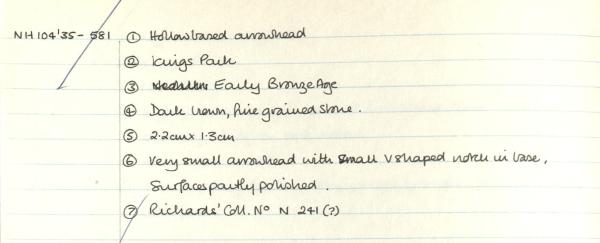 NH 104'35 - 581 ① Hollow based arrowhead
② Kings Park
③ Early Bronze Age
④ Dark brown, fine grained stone.
⑤ 2.2cm x 1.3cm
⑥ Very small arrowhead with small V shaped notch in base,
Surfaces partly polished.
⑦ Richards' Coll. No N 241 (?)